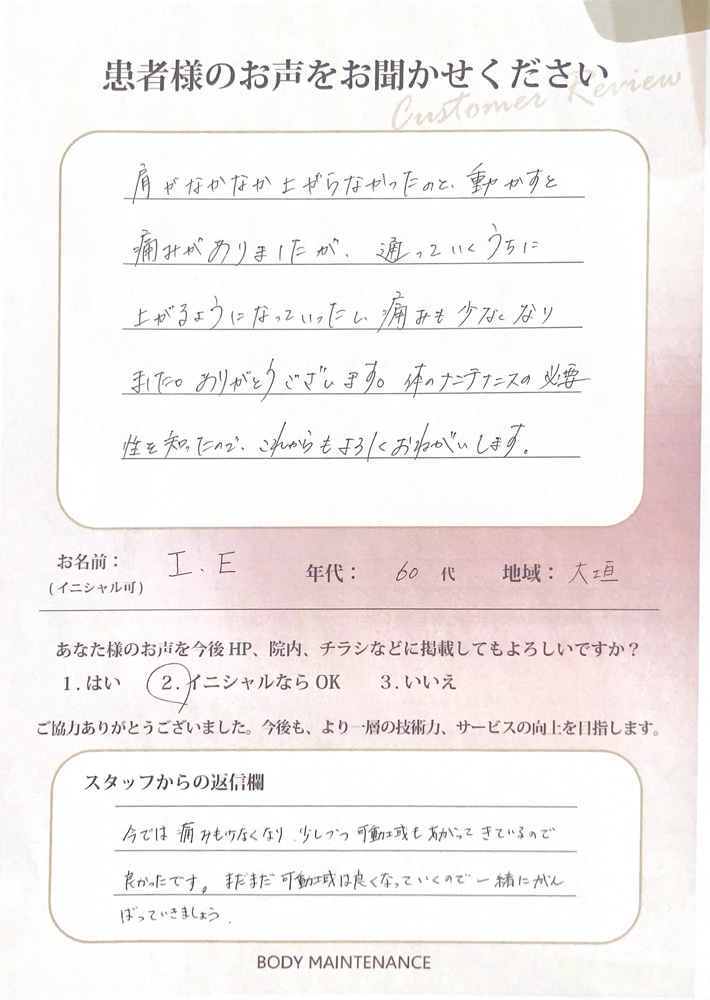 患者様のお声をお聞かせください
Customer Review
肩がなかなか上がらなかったのと、動かすと
痛みがありましたが、通っていくうちに
上がるようになっていったし、痛みも少なくなり
ました。ありがとうございます。体のメンテナンスの必要
性を知ったので、これからもよろしくおねがいします。
お名前： I.E 年代： 60代 地域： 大垣
(イニシャル可)
あなた様のお声を今後HP、院内、チラシなどに掲載してもよろしいですか？
1.はい 2.イニシャルならOK 3.いいえ
ご協力ありがとうございました。今後も、より一層の技術力、サービスの向上を目指します。
スタッフからの返信欄
今では痛みも少なくなり、少しづつ可動域もあがってきているので
良かったです。まだまだ可動域は良くなっていくので一緒にがん
ばっていきましょう.
BODY MAINTENANCE